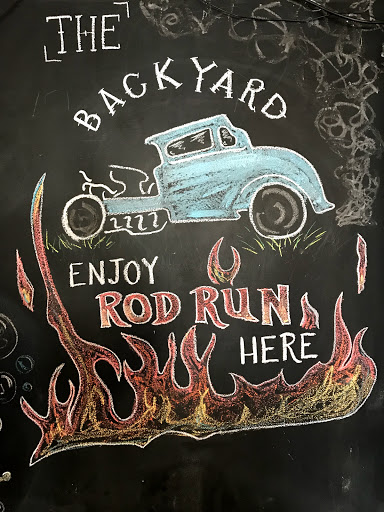 THE
BACKYARD
ENJOY
ROD RUN
HERE